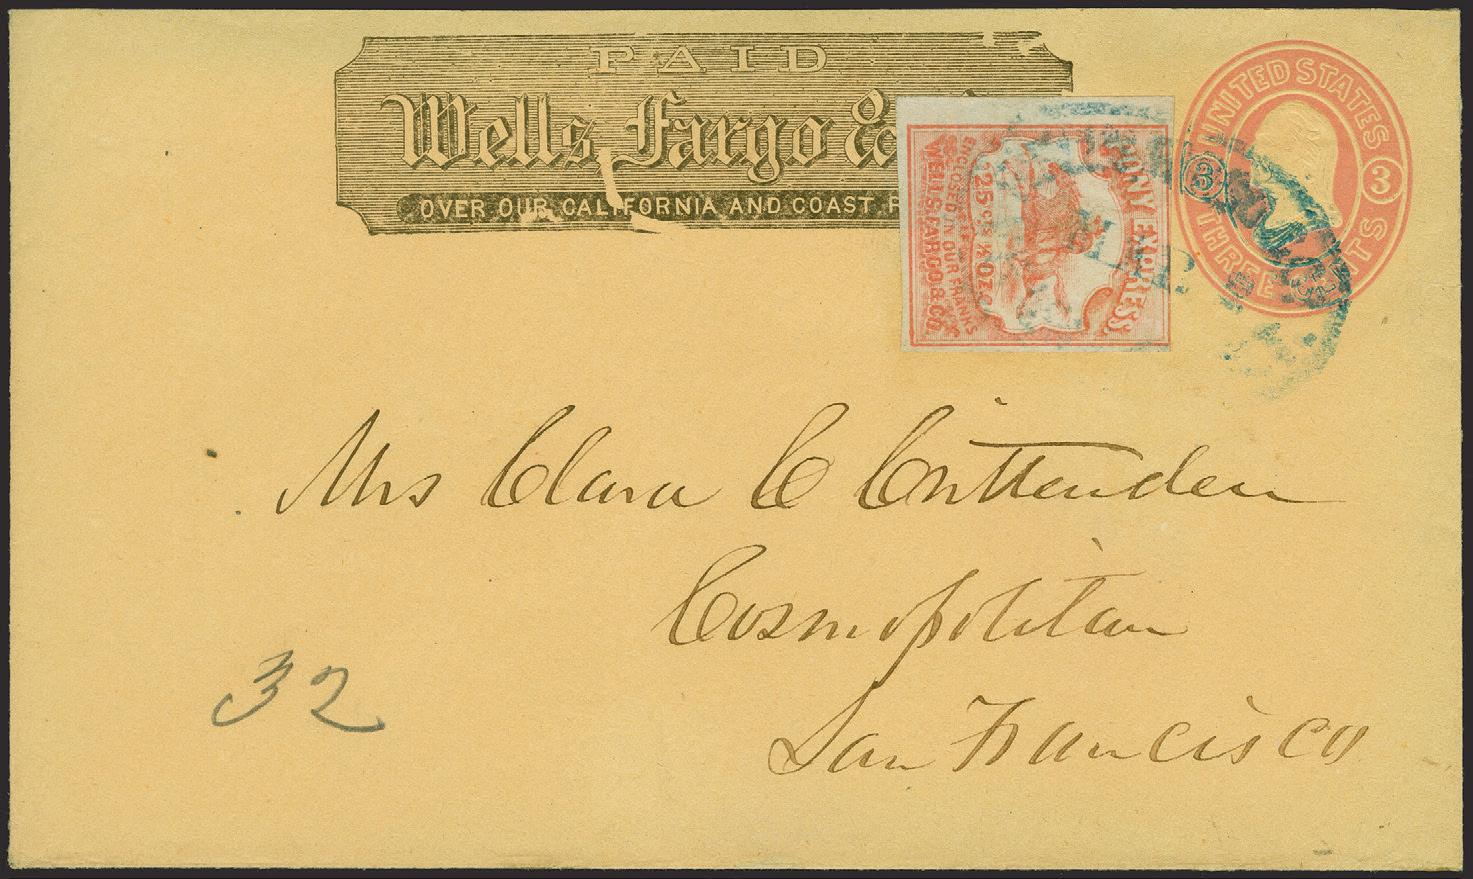 PAID
Wells, Fargo &
OVER OUR CALIFORNIA AND COAST
PONY EXPRESS,
25 Cts ½ OZ.
ENCLOSED IN OUR FRANKS
WELLS, FARGO & CO.
UNITED STATES
3 3
THREE CENTS
MAR.
Mrs Clara C Crittenden
Cosmopolitan
San Francisco
32